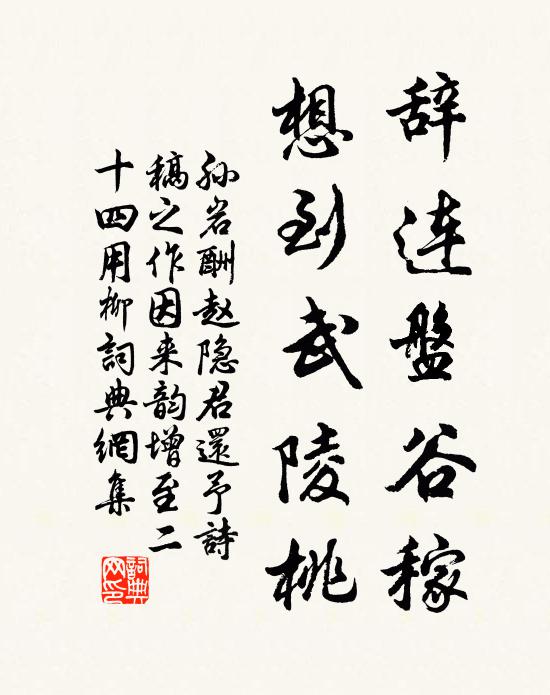 辞连盤谷稼
想到武陵桃
孙岩酬赵隐君還予詩
稿之作因来韵增至二
十四用柳詞典網集
詞典网印